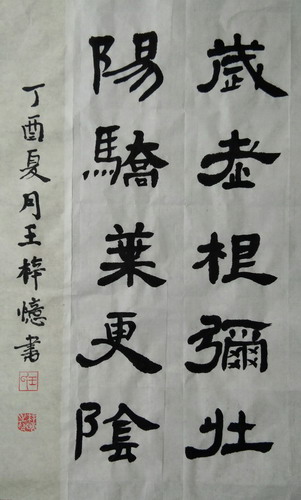 歲老根彌壯
陽驕葉更陰
丁酉夏月王梓憶書